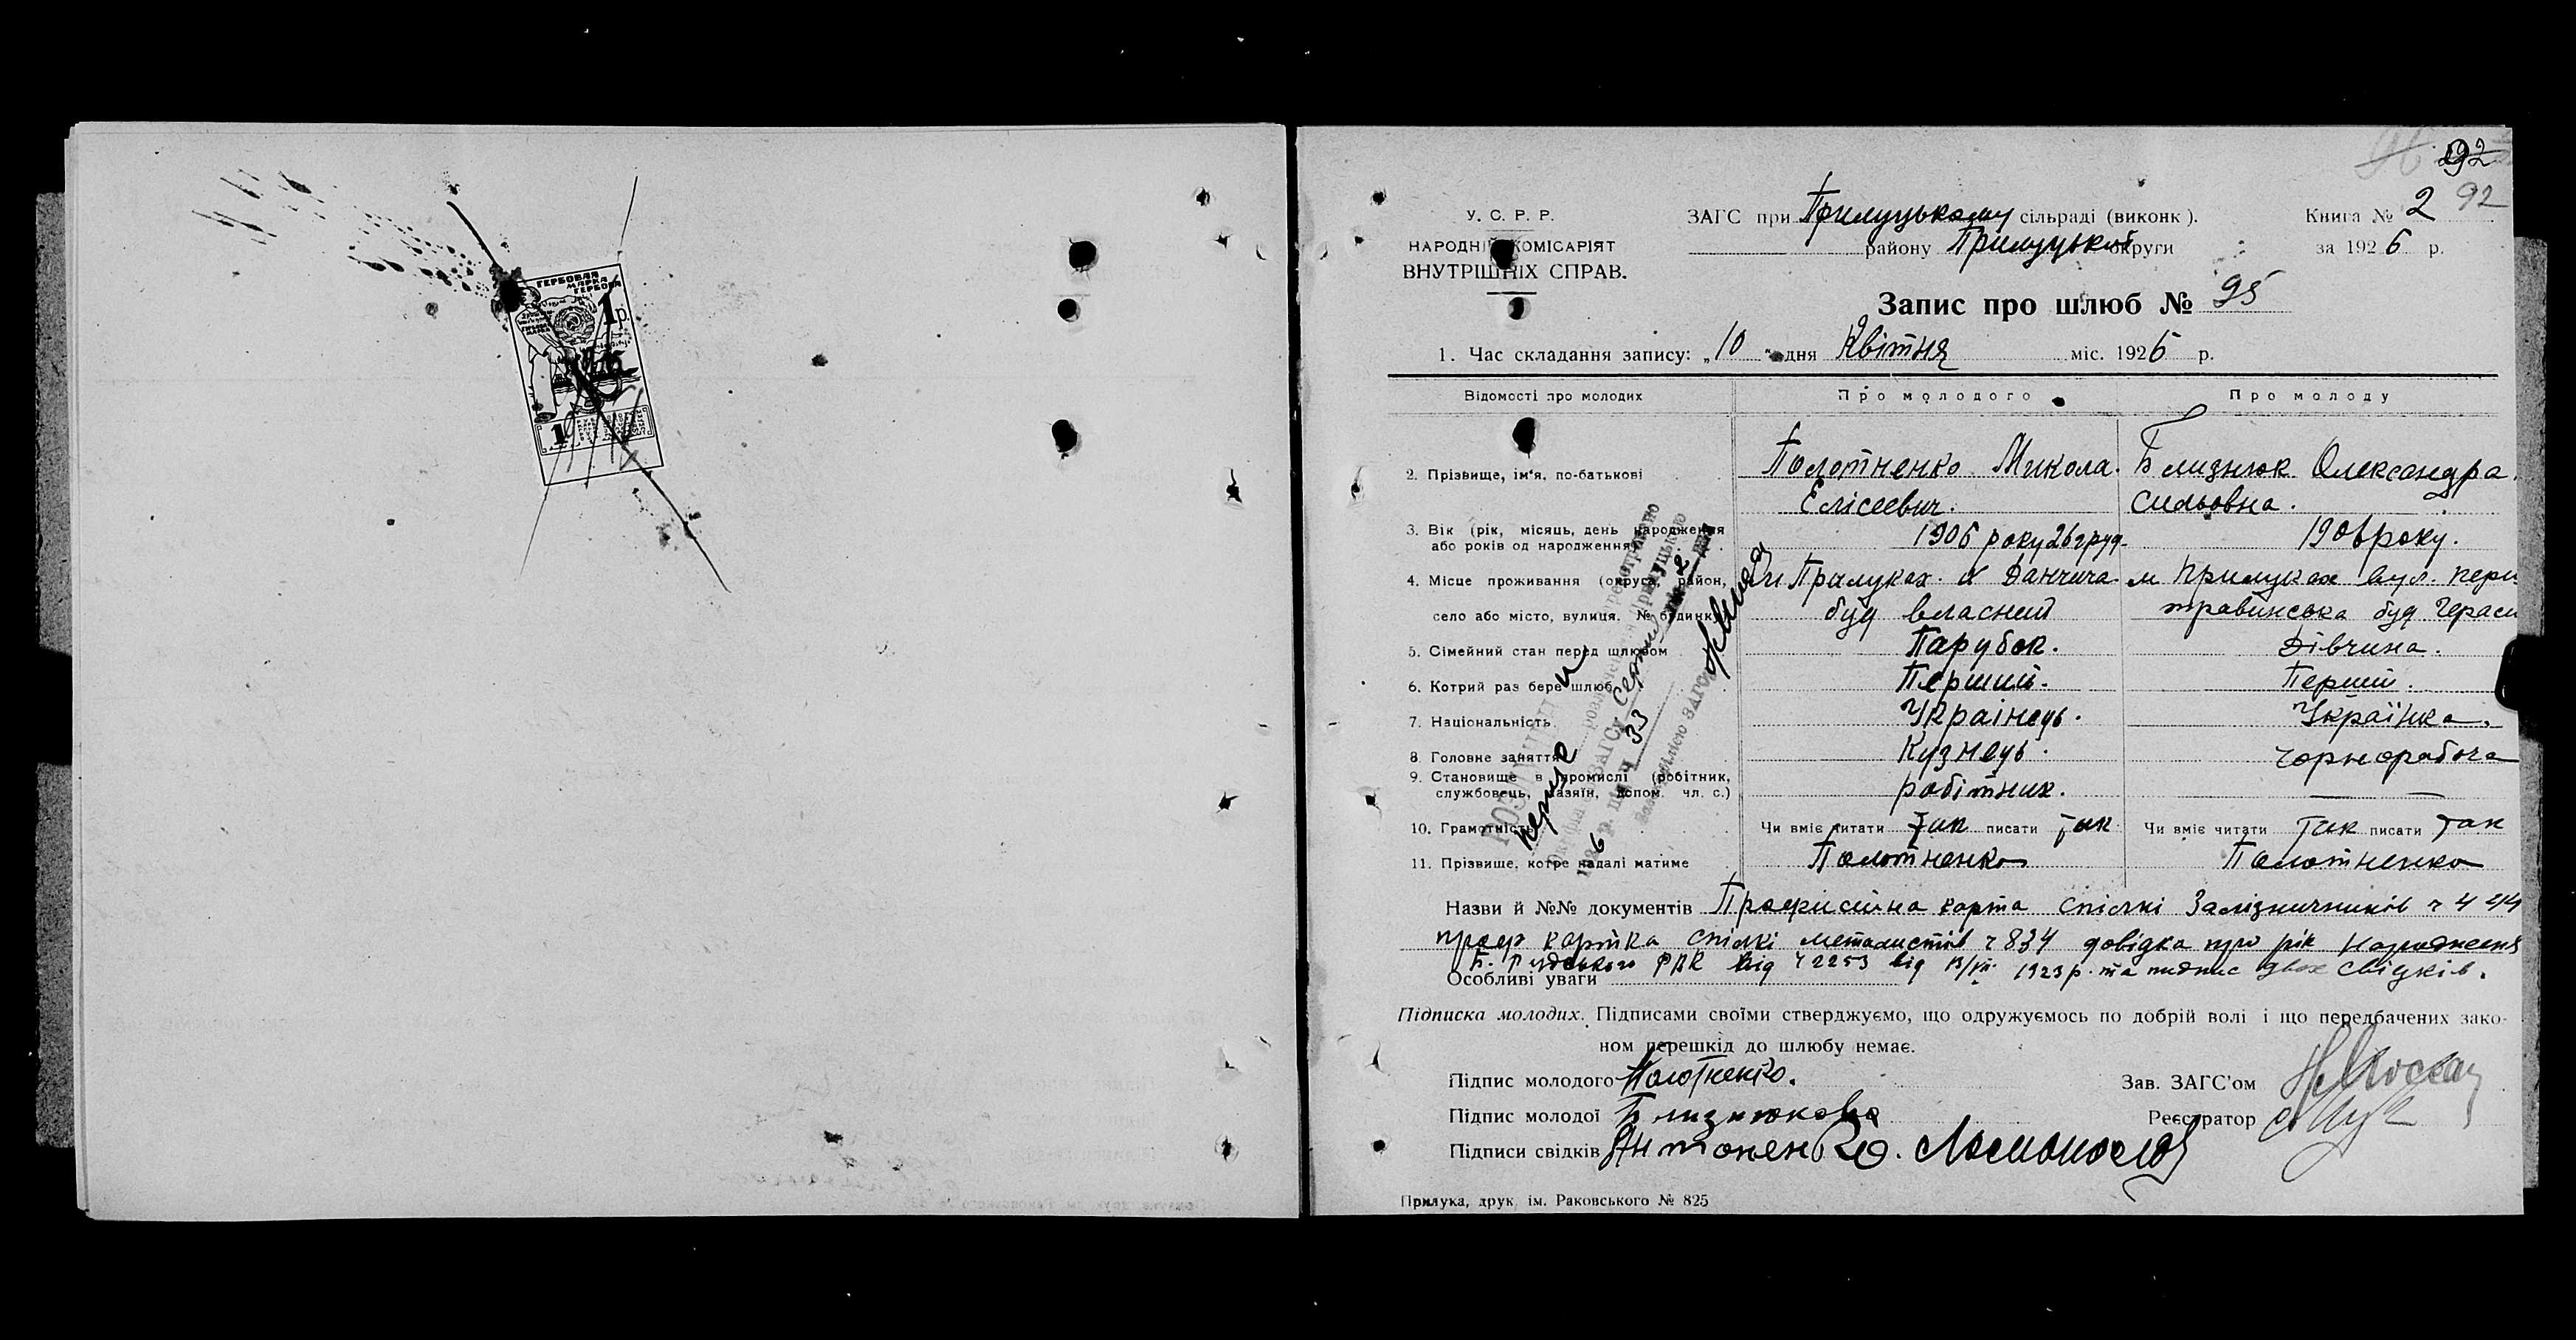 ГЕРБОВАЯ
МАРКА
ГЕРБОВА
1 р.
1
92
У. С. Р. Р.
ЗАГС при Прилуцькому сільраді (виконк).
Книга № 2 92
НАРОДНІЙ КОМІСАРІЯТ
району Прилуцької округи
за 1926 р.
ВНУТРІШНІХ СПРАВ.
Запис про шлюб № 95
1. Час складання запису: „10" дня Квітня міс. 1926 р.
Відомості про молодих
Про молодого
Про молоду
2. Прізвище, ім'я, по-батькові
Полотненко Микола
Єлісеевич.
Близнюк Олександра
3. Вік (рік, місяць, день народження
або років од народження)
1906 року 26 груд-
1906 року.
4. Місце проживання (округа, район,
село або місто, вулиця. № будинку)
м Прилуках.
буд власний
м Прилуках вул. Перш
травинська буд Гераси
5. Сімейний стан перед шлюбом
Парубок.
Дівчина.
6. Котрий раз бере шлюб
Перший.
Перший.
7. Національність
Українець.
Українка.
8. Головне заняття
Кузнець.
Чорнорабоча
9. Становище в промислі (робітник,
службовець, хазяїн, допом. чл. с.)
робітник.
10. Грамотність
Чи вміє читати так писати так
Чи вміє читати так писати так
11. Прізвище, котре надалі матиме
Полотненко
Полотненко
Назви й №№ документів Профисійна карта спілкі Залізничників
проф картка спілкі металистів ч 834 довідка про рік народження
РВК від ч 2253 від 1923 р. та підпис двох свідків.
Особливі уваги
Підписка молодих. Підписами своїми стверджуємо, що одружуємось по добрій волі і що передбачених зако-
ном перешкід до шлюбу немає.
Підпис молодого Полотненко.
Зав. ЗАГС'ом
Підпис молодої Близнюкова
Реєстратор
Підписи свідків Антоненко.
Прилука, друк. ім. Раковського № 825